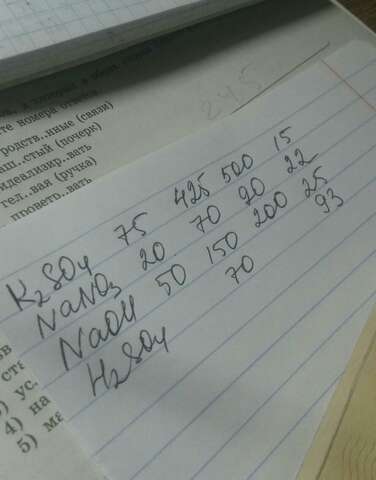 те номера ответ
родств..нные (связи)
ап..стый (почерк)
идеализир..вать
гел..вая (ручка)
проветр..вать
245
K₂SO₄ 75 425 500 15
NaNO₃ 20 70 90 22
NaOH 50 150 200 25
H₂SO₄ 70 93
4) на
5) ма